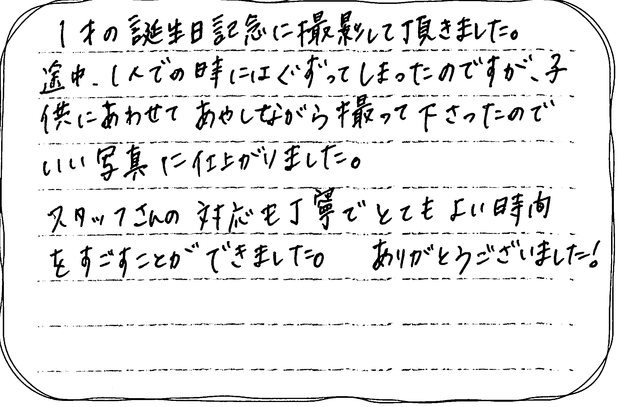 1才の誕生日記念に撮影して頂きました。
途中、1人での時にはぐずってしまったのですが、子
供にあわせてあやしながら撮って下さったので
いい写真に仕上がりました。
スタッフさんの対応も丁寧でとてもよい時間
をすごすことができました。 ありがとうございました!